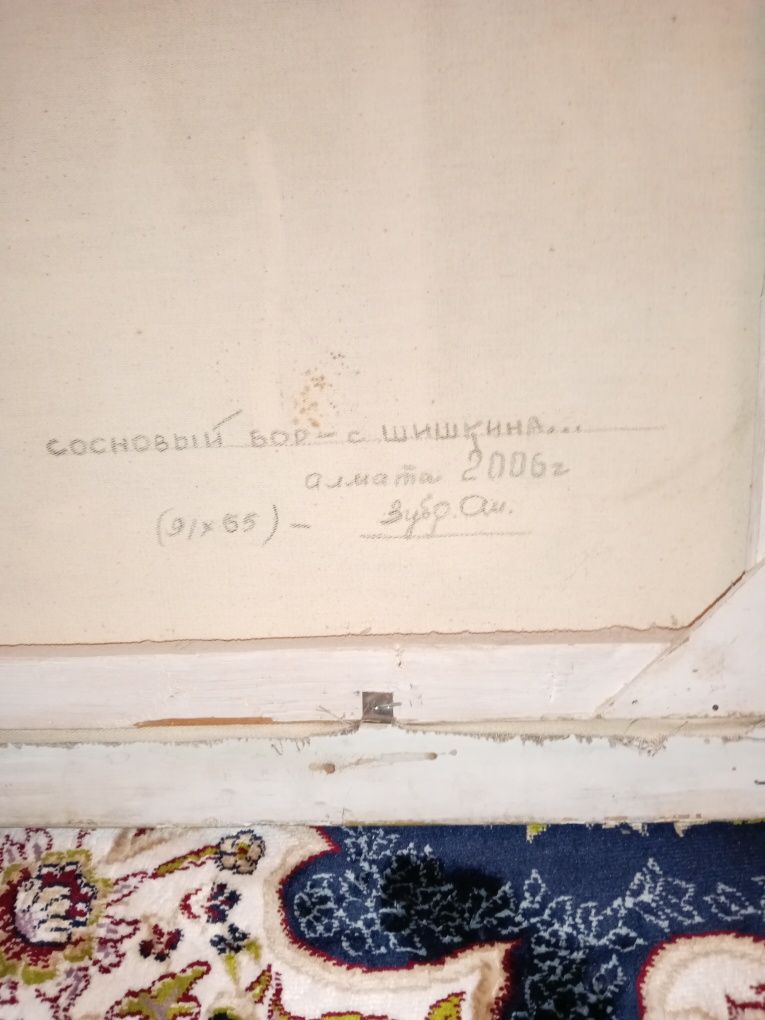 СОСНОВЫЙ БОР - С ШИШКИНА...
Алмата 2006г
(91х65) - Зубр. Ам.